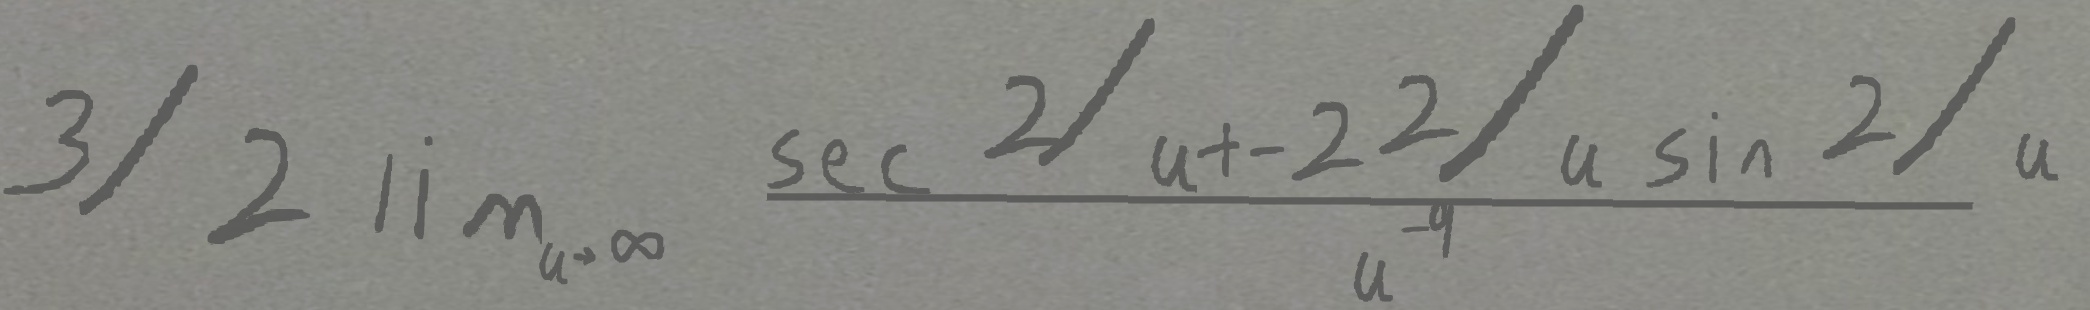 \frac{3}{2} \lim_{u \to \infty} \frac{\sec \frac{2}{u} + -2 \frac{2}{u} \sin \frac{2}{u}}{u^{-9}}